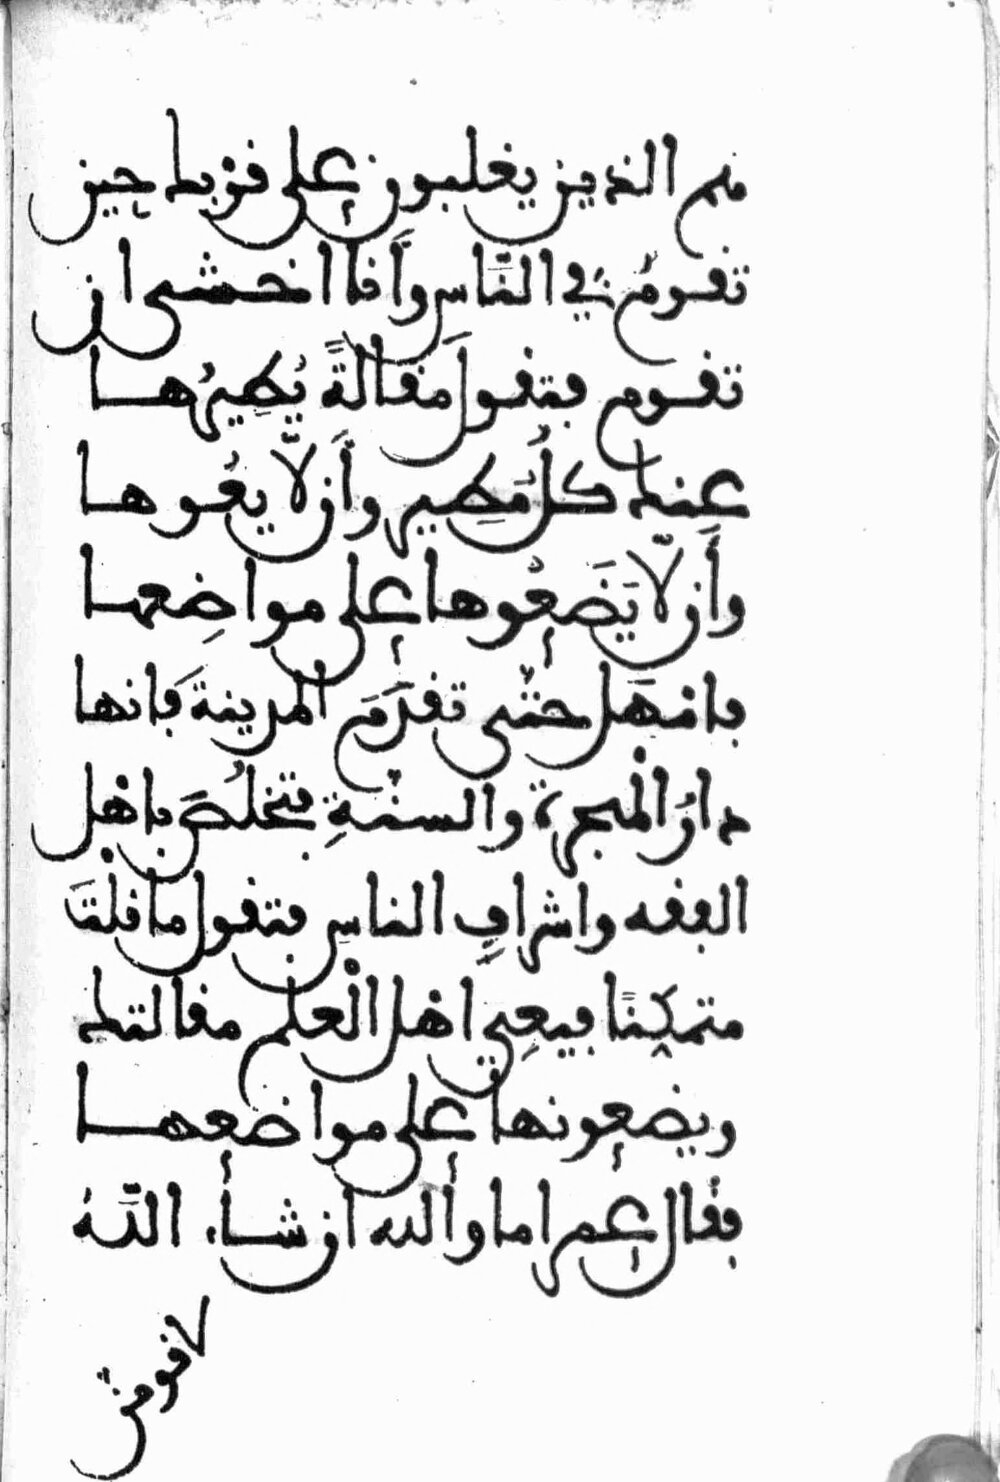 هم الذين يغلبون على قربك حين
تقوم في النَّاس وأنا اخشى ان
تقوم فتقول مقالةً يُطيرُها
عنك كلُّ مُطير وأن لّا يعُوها
وأن لّا يَضَعُوها على مواضِعها
فامْهَل حتّى تقدَمَ المدينةَ فإنها
دارُ الْهجرة والسنّةِ فتخلُصَ باهْل
الفقه واشرافِ الناسِ فتقول ما قلْتَ
متمكِّنًا فيعِي اهْل الْعلم مقالتك
ويضعونها على مواضعها
فقال عمر اما والله ان شاء اللَّهُ
لاقومن